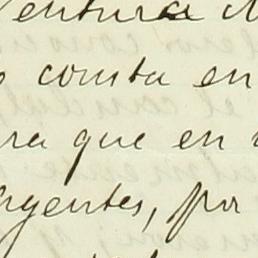 entura
consta en
ra que en
gentes, por